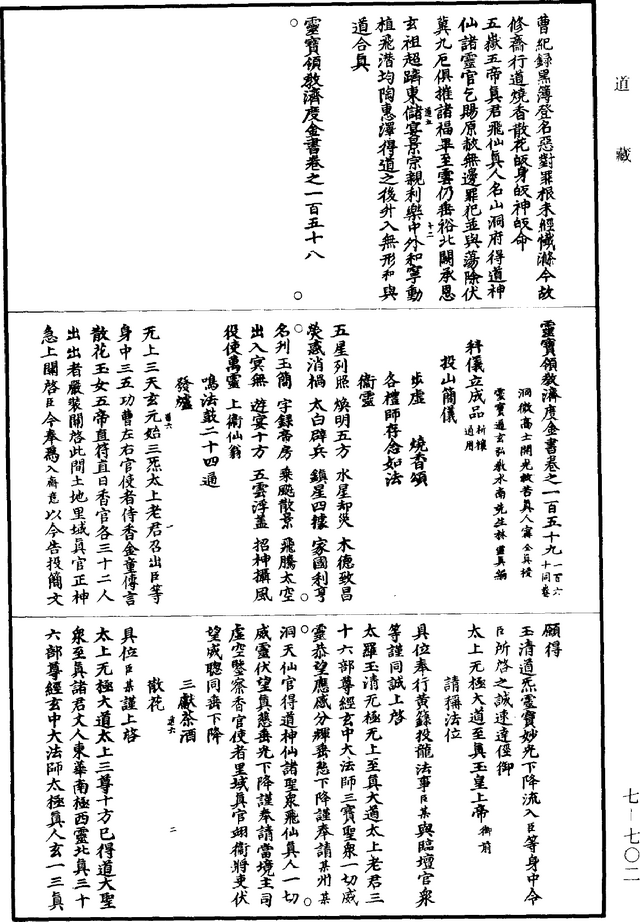 道藏
曹紀錄黑簿登名惡對罪根未經懺滌今故
修齋行道燒香散花皈身皈神皈命
五嶽五帝真君飛仙真人名山洞府得道神
仙諸靈官乞賜原赦無邊罪犯並與蕩除伏
冀九戹俱摧諸福畢至雲仍垂裕北闕承恩
玄祖超躋東儲宴景宗親利樂中外和寧動
植飛潛均陶惠澤得道之後升入無形和與
道合真
靈寶領教濟度金書卷之一百五十八
靈寶領教濟度金書卷之一百五十九 一百六十同卷
洞微高士開光救苦真人甯全真授
靈寶通玄弘教水南先生林靈真編
科儀立成品 祈禳通用
投山簡儀
步虛 燒香頌
各禮師存念如法
衛靈
五星列照 煥明五方 水星却災 木德致昌
熒惑消禍 太白辟兵 鎮星四據 家國利亨
名列玉簡 字錄帝房 乘飈散景 飛騰太空
出入冥無 遊宴十方 五雲浮蓋 招神攝風
役使萬靈 上衛仙翁
鳴法鼓二十四通
發爐
无上三天玄元始三炁太上老君召出臣等
身中三五功曹左右官使者侍香金童傳言
散花玉女五帝直符直日香官各三十二人
出出者嚴裝關啓此間土地里域真官正神
急上關啓臣今奉為入齋意以今告投簡文
願得
玉清道炁靈寶妙光下降流入臣等身中令
臣所啓之誠速達徑御
太上无極大道至真玉皇上帝御前
請稱法位
具位奉行黃籙投龍法事臣某與臨壇官眾
等謹同誠上啓
太羅玉清元極无上至真大道太上老君三
十六部尊經玄中大法師三寶聖眾一切威
靈恭望應感分輝垂慈下降謹奉請某州某
洞天仙官得道神仙諸聖眾飛仙真人一切
威靈伏望真慈垂光下降謹奉請當境土司
虛空鑒察香官使者里域真官翊衛將吏伏
望咸聰同垂下降
三獻茶酒
散花
具位臣某謹上啓
太上无極大道太上三尊十方已得道大聖
眾至真諸君丈人東華南極西靈北真三十
六部尊經玄中大法師太極真人玄一三真
七—七〇二